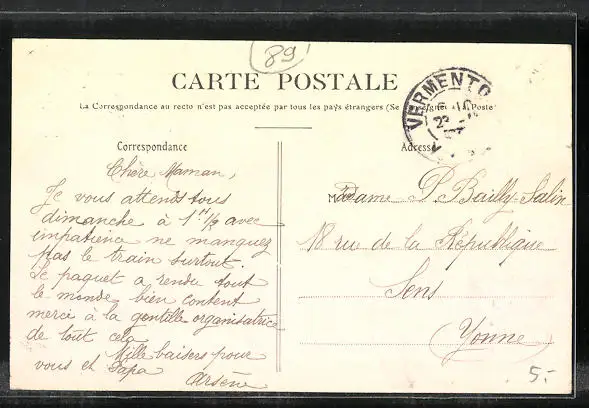 89
CARTE POSTALE
La Correspondance au recto n'est pas acceptée par tous les pays étrangers (Se à la Poste
VERMENTO
Correspondance
Adresse
Chère Maman,
Je vous attends tous
dimanche à 1 H 1/2 avec
impatience ne manquez
pas le train surtout.
Le paquet a rendu tout
le monde bien content
merci à la gentille organisatrice
de tout cela
Mille baisers pour
vous et Papa
Arsène
Madame P. Bailly-Salin
18 rue de la République
Sens
(Yonne)
5.-